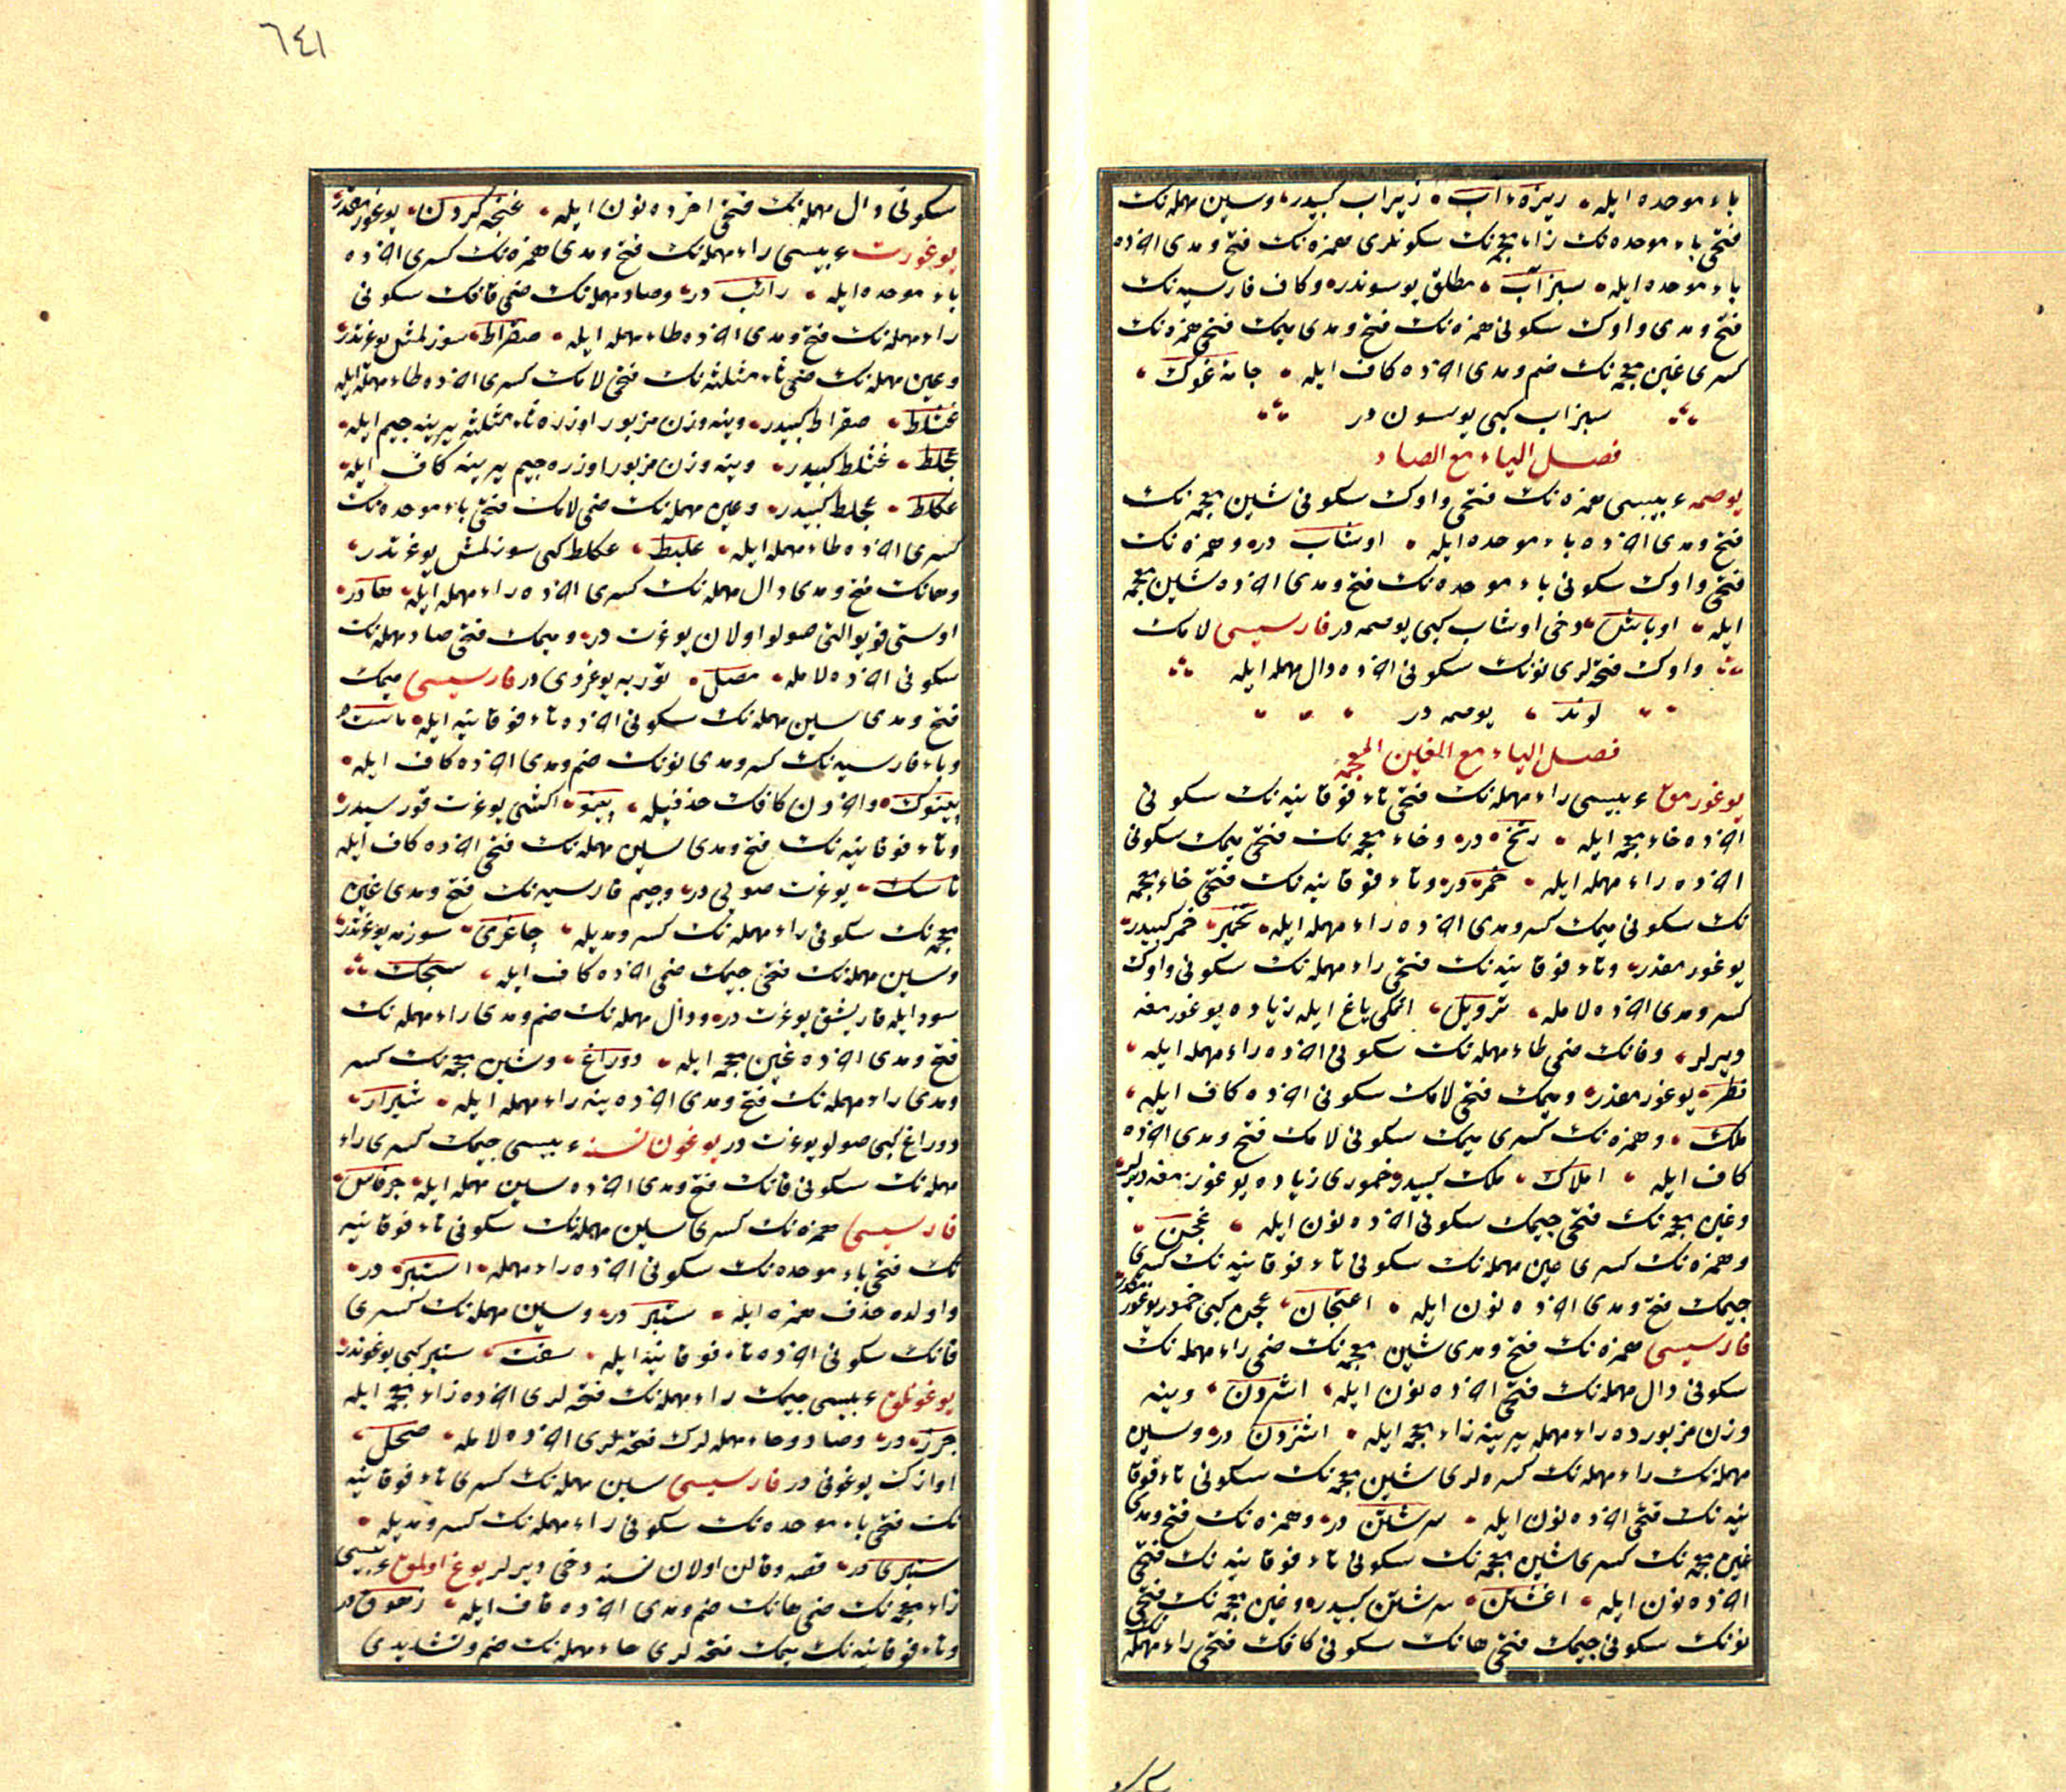 باء موحده ایله ریزه‌ء آب زیراب کبیدر وسین مهمله‌نك
فتحی باء موحده‌نك زاء معجمه‌نك سکونلری همزه‌نك فتح ومدی اخرده
باء موحده ایله سبزآب مطلق یوسوندر وکاف فارسیه‌نك
فتح ومدی واوك سکونی همزه‌نك فتح ومدی میمك فتحی همزه‌نك
کسری غین معجمه‌نك ضم ومدی اخرده کاف ایله جامه غوك
سبزاب کبی یوسون در
فصل الیاء مع الصاد
یوصمه عربیسی همزه‌نك فتحی واوك سکونی شین معجمه‌نك
فتح ومدی اخرده باء موحده ایله اوشاب در وهمزه‌نك
فتحی واوك سکونی باء موحده‌نك فتح ومدی اخرده شین معجمه
ایله اوباش دخی اوشاب کبی یوصمه در فارسیسی لامك
واوك فتحه‌لری نونك سکونی اخرده دال مهمله ایله
لوند یوصمه در
فصل الیاء مع الغین المعجمه
یوغورمق عربیسی راء مهمله‌نك فتحی تاء فوقانیه‌نك سکونی
اخرده خاء معجمه ایله رتخ در وخاء معجمه‌نك فتحی میمك سکونی
اخرده راء مهمله ایله خمر در وتاء فوقانیه‌نك فتحی خاء معجمه
نك سکونی میمك کسر ومدی اخرده راء مهمله ایله تخمیر خمر کبیدر
یوغورمقدر وتاء فوقانیه‌نك فتحی راء مهمله‌نك سکونی واوك
کسر ومدی اخرده لامله ترویل اتمکی یاغ ایله زیاده یوغورمغه
دیرلر وفانك ضمی طاء مهمله‌نك سکونی اخرده راء مهمله ایله
فطر یوغورمقدر ومیمك فتحی لامك سکونی اخرده کاف ایله
ملك وهمزه‌نك کسری میمك سکونی لامك فتح ومدی اخرده
کاف ایله املاك ملك کبیدر خموری زیاده یوغورمغه دیرلر
وغین معجمه‌نك فتحی جیمك سکونی اخرده نون ایله غجن
وهمزه‌نك کسری عین مهمله‌نك سکونی تاء فوقانیه‌نك کسری
جیمك فتح ومدی اخرده نون ایله اعتجان عجن کبی خمور یوغورمقدر
فارسیسی همزه‌نك فتح ومدی شین معجمه‌نك ضمی راء مهمله‌نك
سکونی دال مهمله‌نك فتحی اخرده نون ایله اشردن وینه
وزن مزبورده راء مهمله یرینه زاء معجمه ایله اشزدن در وسین
مهمله‌نك راء مهمله‌نك کسره‌لری شین معجمه‌نك سکونی تاء فوقا
نیه‌نك فتحی اخرده نون ایله سرشتن در وهمزه‌نك فتح ومدی
غین معجمه‌نك کسری شین معجمه‌نك سکونی تاء فوقانیه‌نك فتحی
اخرده نون ایله اغشتن سرشتن کبیدر وغین معجمه‌نك فتحی
نونك سکونی جیمك فتحی هانك سکونی کافك فتحی راء مهمله‌نك
٦٤١
سکونی دال مهمله‌نك فتحی اخرده نون ایله غنجه کردن یوغورمقدر
یوغورت عربیسی راء مهمله‌نك فتح ومدی همزه‌نك کسری اخرده
باء موحده ایله رائب در وصاد مهمله‌نك ضمی قافك سکونی
راء مهمله‌نك فتح ومدی اخرده طاء مهمله ایله صقراط سوزلمش یوغرتدر
وعین مهمله‌نك ضمی ثاء مثلثه‌نك فتحی لامك کسری اخرده طاء مهمله ایله
عثلط صقراط کبیدر وینه وزن مزبور اوزره ثاء مثلثه یرینه جیم ایله
عجلط عثلط کبیدر وینه وزن مزبور اوزره جیم یرینه کاف ایله
عکلط عجلط کبیدر وعین مهمله‌نك ضمی لامك فتحی باء موحده‌نك
کسری اخرده طاء مهمله ایله علبط عکلط کبی سوزلمش یوغرتدر
وهانك فتح ومدی دال مهمله‌نك کسری اخرده راء مهمله ایله هادر
اوستی قویو التی صولو اولان یوغرت در ومیمك فتحی صاد مهمله‌نك
سکونی اخرده لامله مصل توربه یوغردی در فارسیسی میمك
فتح ومدی سین مهمله‌نك سکونی اخرده تاء فوقانیه ایله ماست در
وباء فارسیه‌نك کسر ومدی نونك ضم ومدی اخرده کاف ایله
پینوك واخردن کافك حذفیله پینو اکشی یوغرت قوریسیدر
وتاء فوقانیه‌نك فتح ومدی سین مهمله‌نك فتحی اخرده کاف ایله
تاسك یوغرت صویی در وجیم فارسیه‌نك فتح ومدی غین
معجمه‌نك سکونی راء مهمله‌نك کسر ومدیله چاغری سوزمه یوغرتدر
وسین مهمله‌نك فتحی جیمك ضمی اخرده کاف ایله سجك
سود ایله قاریشق یوغرت در ودال مهمله‌نك ضم ومدی راء مهمله‌نك
فتح ومدی اخرده غین معجمه ایله دوراغ وشین معجمه‌نك کسر
ومدی راء مهمله‌نك فتح ومدی اخرده ینه راء مهمله ایله شیراز
دوراغ کبی صولو یوغرت در یوغون نسنه عربیسی جیمك کسری راء
مهمله‌نك سکونی فانك فتح ومدی اخرده سین مهمله ایله جرفاس
فارسیسی همزه‌نك کسری سین مهمله‌نك سکونی تاء فوقانیه
نك فتحی باء موحده‌نك سکونی اخرده راء مهمله استبر در
واولده حذف همزه ایله ستبر در وسین مهمله‌نك کسری
فانك سکونی اخرده تاء فوقانیه ایله سفت ستبر کبی یوغوندر
یوغونلق عربیسی جیمك راء مهمله‌نك فتحه‌لری اخرده زاء معجمه ایله
جرز در وصاد وحاء مهمله‌لرك فتحه‌لری اخرده لامله صحل
اوازك یوغونی در فارسیسی سین مهمله‌نك کسری تاء فوقانیه
نك فتحی باء موحده‌نك سکونی راء مهمله‌نك کسر ومدیله
ستبری در قصه وقالن اولان نسنه دخی دیرلر یوغ اولمق عربیسی
زاء معجمه‌نك ضمی هانك ضم ومدی اخرده قاف ایله زهوق در
وتاء فوقانیه‌نك میمك فتحه‌لری حاء مهمله‌نك ضم وتشدیدی